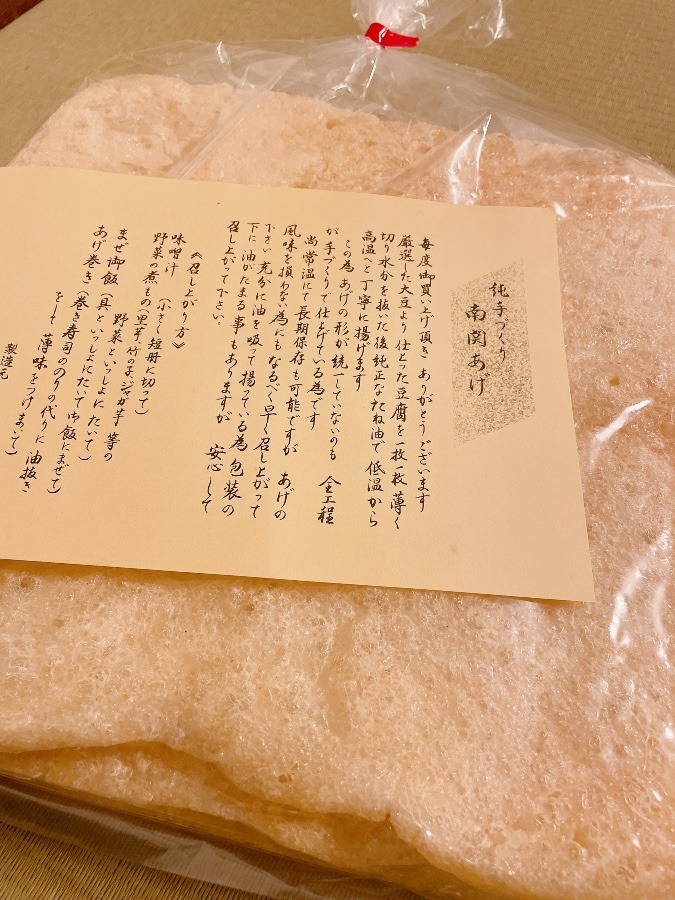 純手づくり
南関あげ
毎度御買い上げ頂き ありがとうございます
厳選した大豆より仕上った豆腐を一枚一枚薄く
切り水分を抜いた後純正なたね油で 低温から
高温へと丁寧に揚げます
この為 あげの形が統一していないのも 全工程
が手づくりで仕上げている為です
尚常温にて長期保存も可能ですが あげの
風味を損わない為にもなるべく早く召し上がって
下さい 充分に油を吸って揚っている為 包装の
下に油がたまる事もありますが 安心して
召し上がって下さい。
《召し上がり方》
味噌汁 (小さく短冊に切って)
野菜の煮もの(里芋、竹の子、ジャガ芋 等の
野菜といっしょにたいて)
まぜ御飯(具といっしょにたいて御飯にまぜて)
あげ巻き(巻き寿司ののりの代りに 油抜き
をして 薄味をつけまいて)
製造元